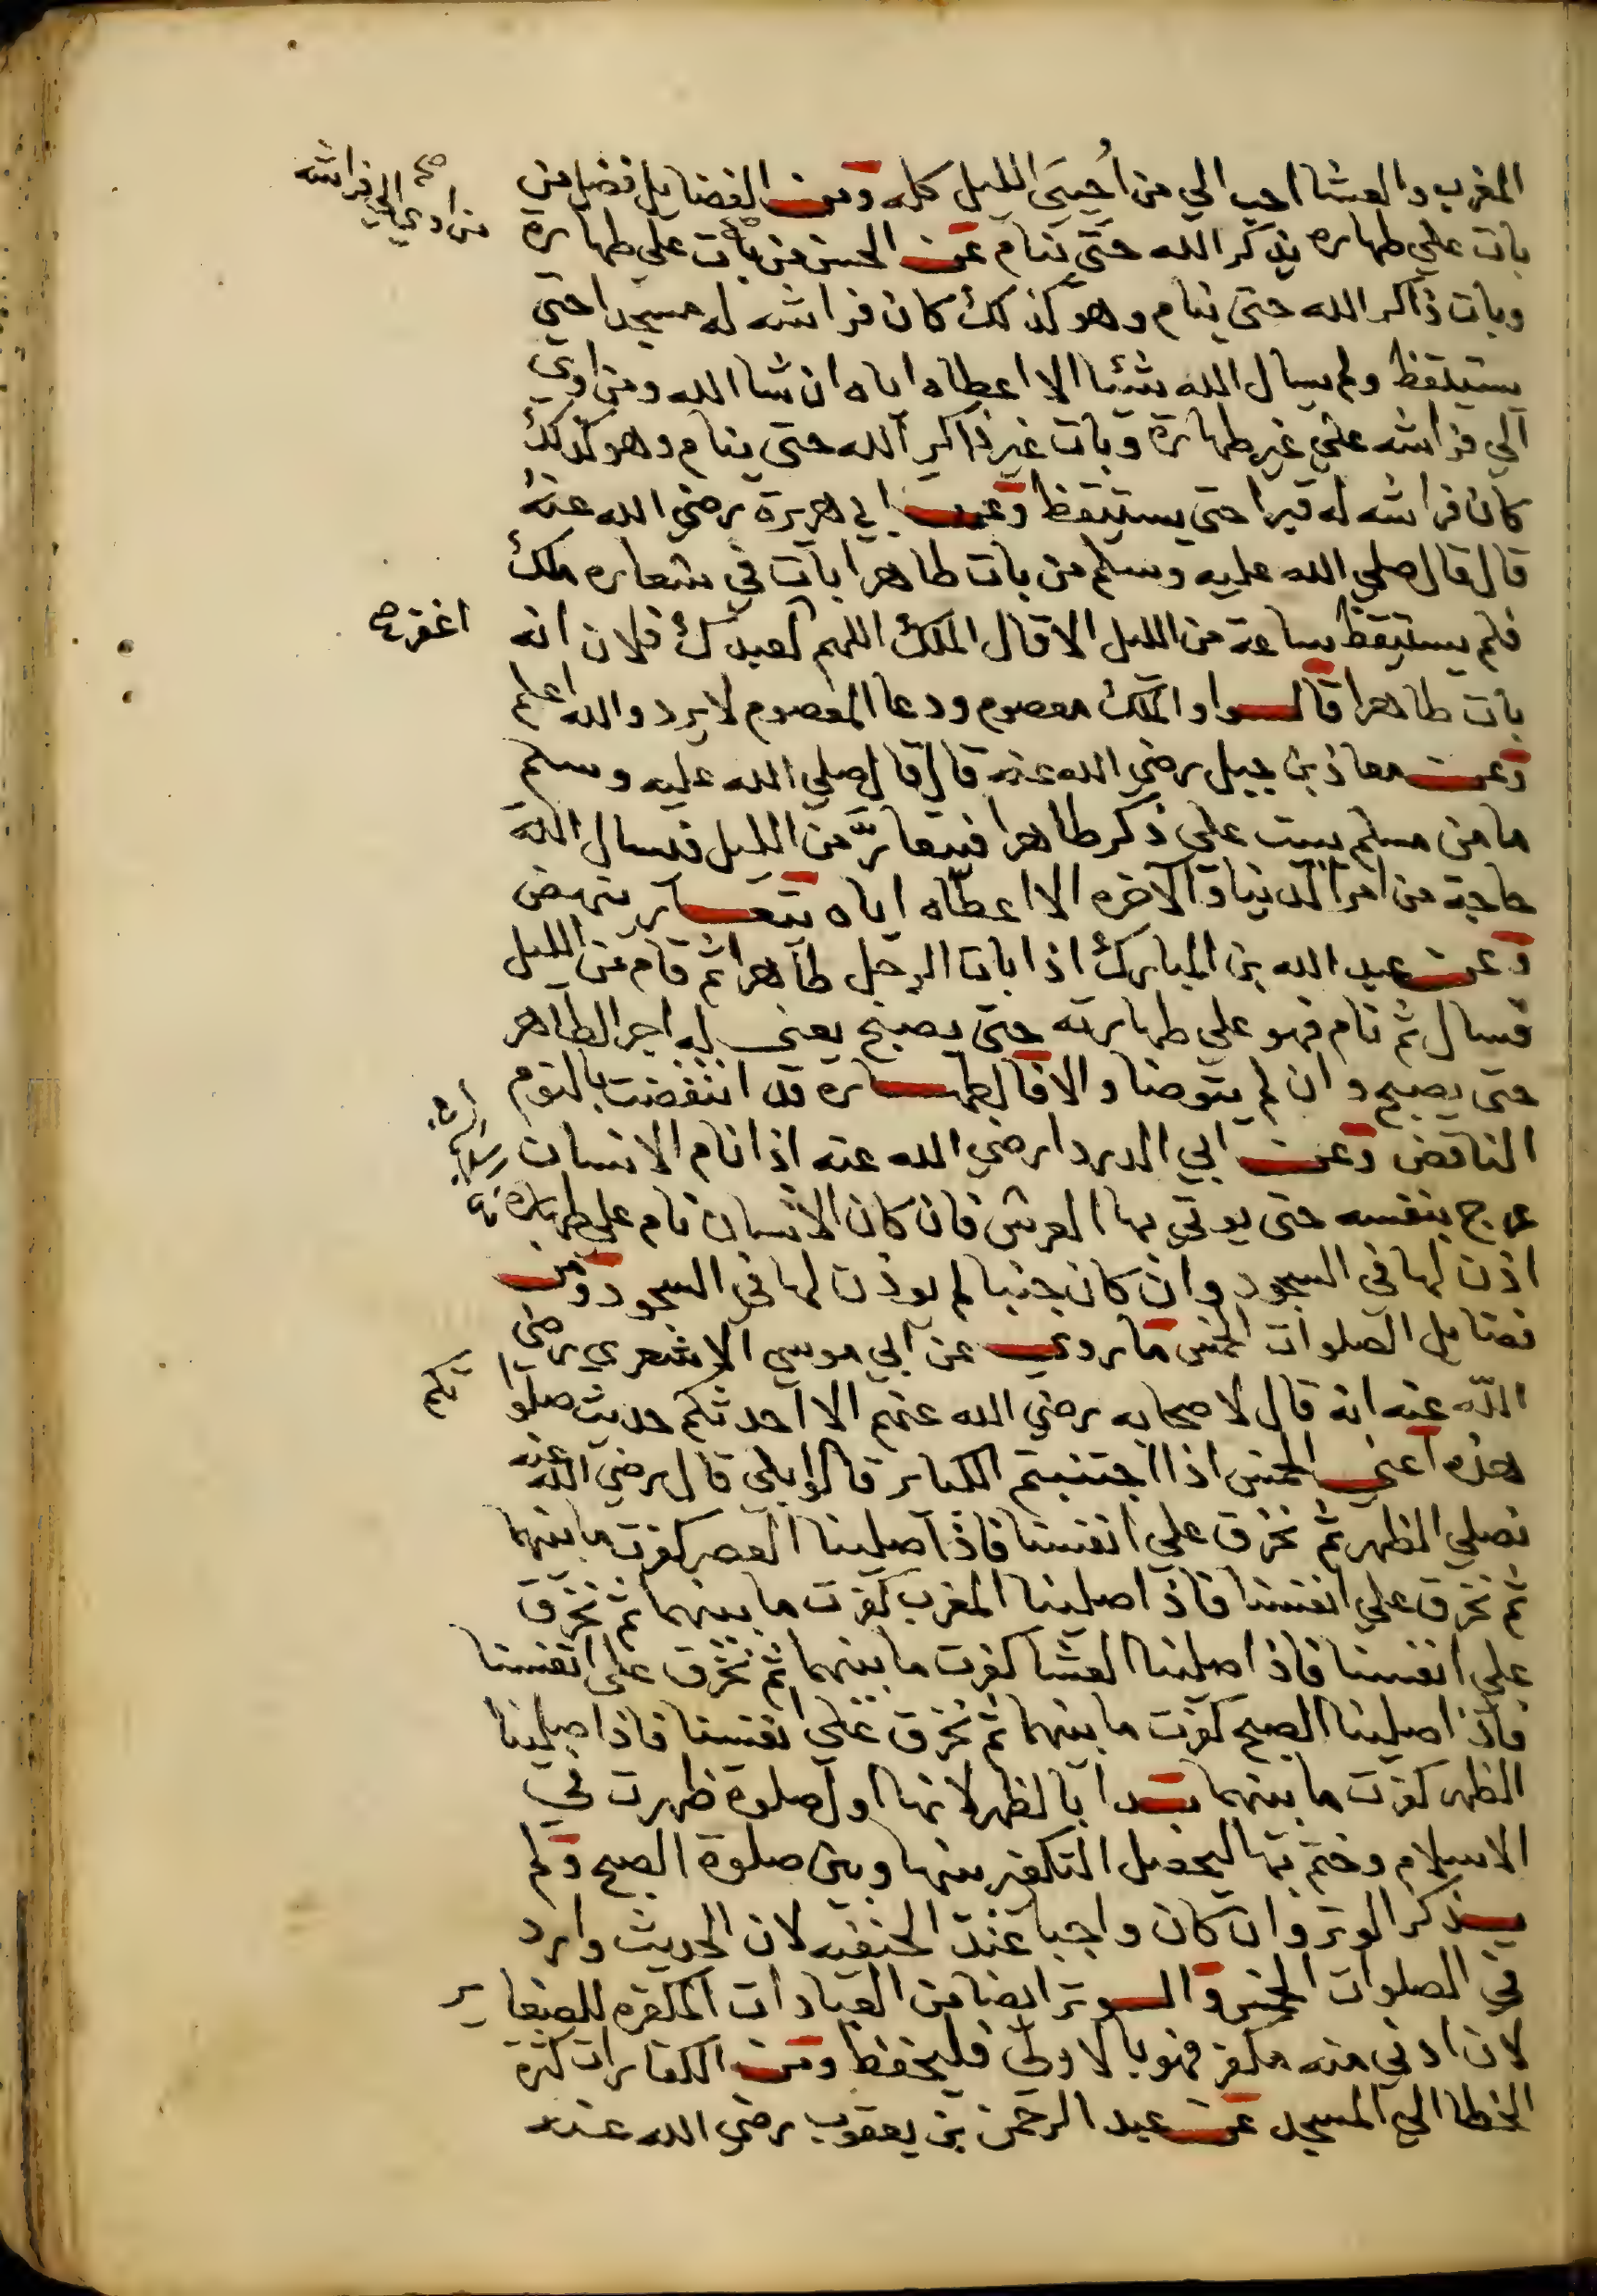 المغرب والعشا احب الي من أُحيىَ الليل كله ومن الفضايل فضل من
من اوي الي فراشه صح
بات علي طهاره يذكر الله حتي ينام عن الحسن من بات علي طهارة
وبات ذاكر الله حتي ينام وهو كذلك كان فراشه له مسجدا حتي
يستيقظ ولم يسال الله شئيا الا اعطاه اياه ان شا الله ومن اوي
الي فراشه علي غير طهارة وبات غير ذاكر الله حتي ينام وهو كذلك
كان فراشه له قبرا حتي يستيقظ وعن ابي هريرة رضي الله عنه
قال قال صلي الله عليه وسلم من بات طاهرا بات في شعاره ملك
فلم يستيقظ ساعة من الليل الا قال الملك اللهم لعبدك فلان انه
اغفر صح
بات طاهرا قالوا والملك معصوم ودعا المعصوم لا يرد والله اعلم
وعن معاذ بن جبل رضي الله عنه قال قال صلي الله عليه وسلم
ما من مسلم يبت علي ذكر طاهرا فيتعارَّ من الليل فيسال الله
حاجة من امر الدنيا والاخره الا اعطاه اياه يتعار ينهض
وعن عبد الله بن المبارك اذا بات الرجل طاهرا ثم قام من الليل
فسال ثم نام فهو علي طهارته حتي يصبح يعني له اجر الطاهر
حتي يصبح وان لم يتوضا والا فالطهارة قد انتقضت بالنوم
الناقض وعن ابي الدردا رضي الله عنه اذا نام الانسان
عرج بنفسه حتي يوتي بها العرش فان كان الانسان نام علي طهارة
اذن لها في السجود وان كان جنبا لم يوذن لها في السجود ومن
فضايل الصلوات الخمس ما روي عن ابي موسي الاشعري رضي
الله عنه انه قال لاصحابه رضي الله عنهم الا احدثكم حديث صلوا
تكم
هذه اعني الخمس اذا اجتنبتم الكباير قالوا بلي قال رضي الله عنه
نصلي الظهر ثم نخرق علي انفسنا فاذا صلينا العصر كفرت ما بينهما
ثم نخرق علي انفسنا فاذا صلينا المغرب كفرت ما بينهما ثم نخرق
علي انفسنا فاذا صلينا العشا كفرت ما بينهما ثم نخرق علي انفسنا
فاذا صلينا الصبح كفرت ما بينهما ثم نخرق علي انفسنا فاذا صلينا
الظهر كفرت ما بينهما بدا بالظهر لانها اول صلوة ظهرت في
الاسلام وختم بها ليحصل التكفير بينها وبين صلوة الصبح ولم
يذكر الوتر وان كان واجبا عند الحنفيه لان الحديث وارد
في الصلوات الخمس والوتر ايضا من العبادات المكفره للصغاير
لان ادني منه مكفر فهو بالاولي فليحفظ ومن الكفارات كثرة
الخطا الي المسجد عن عبد الرحمن بن يعقوب رضي الله عنه